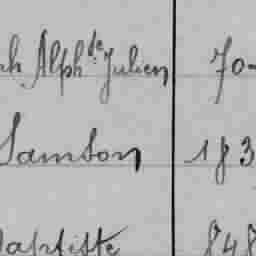 ph Alph.de Julien 70-
Samson 183
Baptiste 848